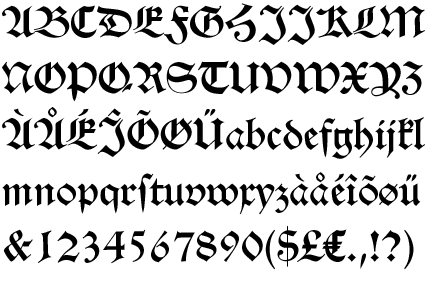 ABCDEFGHIJKLM
NOPQRSTUVWXYZ
ÀÅÉÎÕØÜabcdefghijkl
mnopqrſtuvwxyzàåéîõøü
&1234567890($£€.,!?)